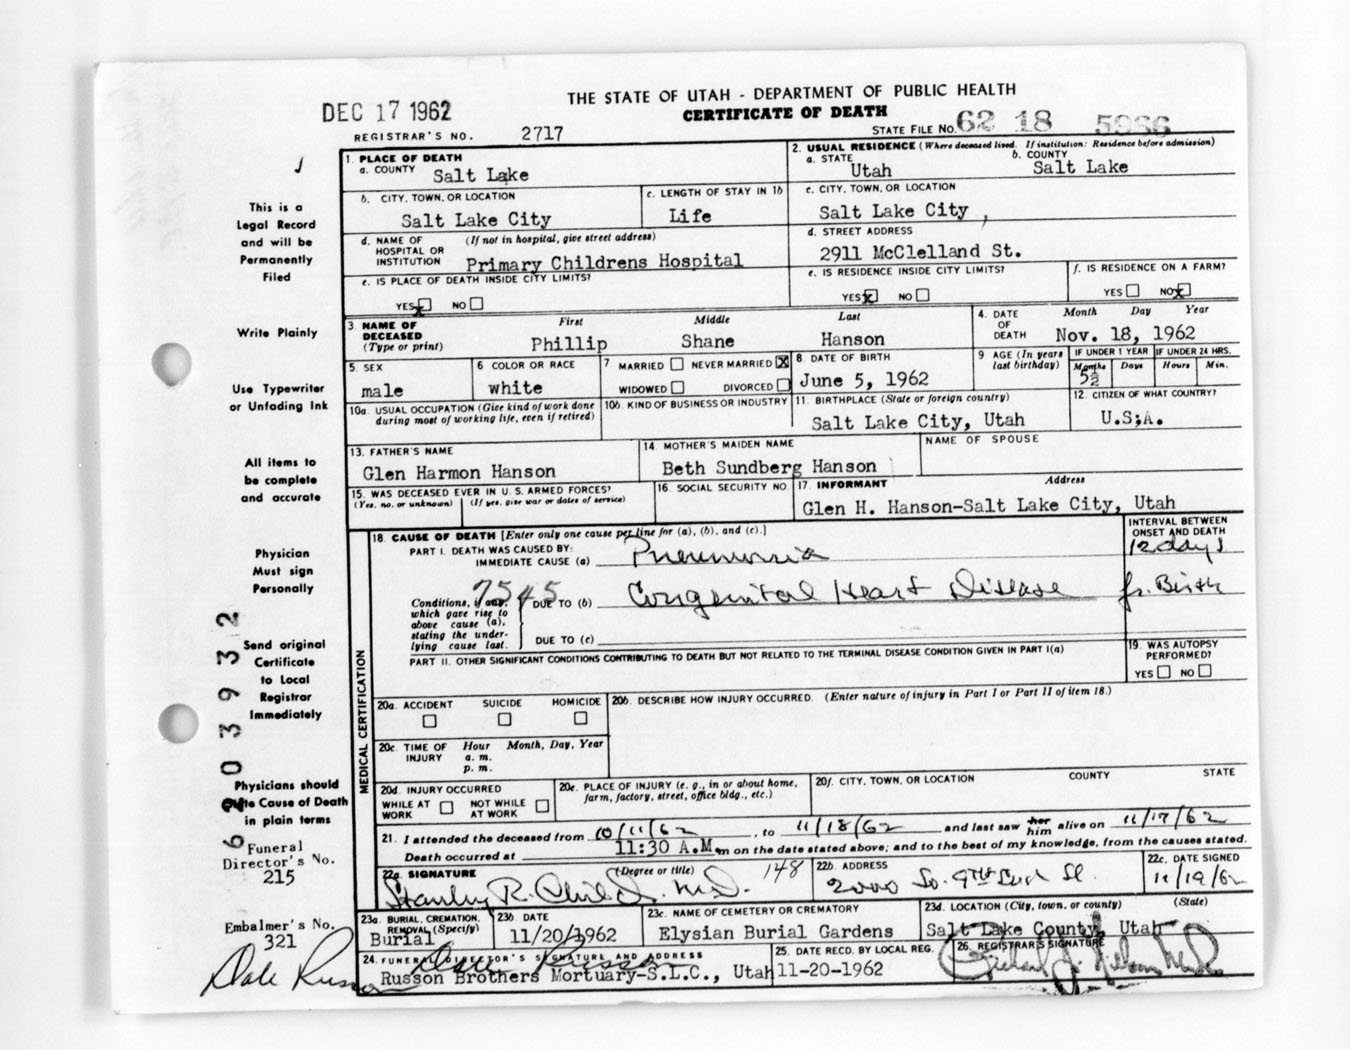 DEC 17 1962
THE STATE OF UTAH - DEPARTMENT OF PUBLIC HEALTH
CERTIFICATE OF DEATH
REGISTRAR'S NO. 2717
STATE FILE NO. 62 18 5986
This is a
Legal Record
and will be
Permanently
Filed
Write Plainly
Use Typewriter
or Unfading Ink
All items to
be complete
and accurate
Physician
Must sign
Personally
Send original
Certificate
to Local
Registrar
Immediately
Physicians should
Cause of Death
in plain terms
Funeral
Director's No.
215
Embalmer's No.
321
Dale Russon
1. PLACE OF DEATH
a. COUNTY Salt Lake
2. USUAL RESIDENCE (Where deceased lived. If institution: Residence before admission)
a. STATE Utah b. COUNTY Salt Lake
b. CITY, TOWN, OR LOCATION Salt Lake City
c. LENGTH OF STAY IN 1b Life
c. CITY, TOWN, OR LOCATION
Salt Lake City
d. NAME OF HOSPITAL OR INSTITUTION (If not in hospital, give street address)
Primary Childrens Hospital
d. STREET ADDRESS
2911 McClelland St.
e. IS PLACE OF DEATH INSIDE CITY LIMITS?
YES x NO
e. IS RESIDENCE INSIDE CITY LIMITS?
YES x NO
f. IS RESIDENCE ON A FARM?
YES NO x
3. NAME OF DECEASED (Type or print)
First Middle Last
Phillip Shane Hanson
4. DATE OF DEATH Month Day Year
Nov. 18, 1962
5. SEX male
6 COLOR OR RACE white
7 MARRIED NEVER MARRIED X
WIDOWED DIVORCED
8. DATE OF BIRTH
June 5, 1962
9 AGE (In years last birthday)
IF UNDER 1 YEAR IF UNDER 24 HRS.
Months Days Hours Min.
5½
10a. USUAL OCCUPATION (Give kind of work done during most of working life, even if retired)
10b. KIND OF BUSINESS OR INDUSTRY
11. BIRTHPLACE (State or foreign country)
Salt Lake City, Utah
12. CITIZEN OF WHAT COUNTRY?
U.S;A.
13. FATHER'S NAME
Glen Harmon Hanson
14. MOTHER'S MAIDEN NAME
Beth Sundberg Hanson
NAME OF SPOUSE
15. WAS DECEASED EVER IN U. S. ARMED FORCES?
(Yes, no, or unknown) (If yes, give war or dates of service)
16. SOCIAL SECURITY NO.
17. INFORMANT Address
Glen H. Hanson-Salt Lake City, Utah
MEDICAL CERTIFICATION
18. CAUSE OF DEATH [Enter only one cause per line for (a), (b), and (c).]
INTERVAL BETWEEN ONSET AND DEATH
PART I. DEATH WAS CAUSED BY:
IMMEDIATE CAUSE (a) Pneumonia 12 days
7545
Conditions, if any, which gave rise to above cause (a), stating the underlying cause last.
DUE TO (b) Congenital Heart Disease fr. Birth
DUE TO (c)
PART II. OTHER SIGNIFICANT CONDITIONS CONTRIBUTING TO DEATH BUT NOT RELATED TO THE TERMINAL DISEASE CONDITION GIVEN IN PART I(a)
19. WAS AUTOPSY PERFORMED?
YES NO
20a. ACCIDENT SUICIDE HOMICIDE
20b. DESCRIBE HOW INJURY OCCURRED. (Enter nature of injury in Part I or Part II of item 18.)
20c. TIME OF INJURY Hour Month, Day, Year
a. m.
p. m.
20d. INJURY OCCURRED
WHILE AT WORK NOT WHILE AT WORK
20e. PLACE OF INJURY (e. g., in or about home, farm, factory, street, office bldg., etc.)
20f. CITY, TOWN, OR LOCATION COUNTY STATE
21. I attended the deceased from 10/11/62, to 11/18/62 and last saw her him alive on 11/17/62
Death occurred at 11:30 A.M. m on the date stated above; and to the best of my knowledge, from the causes stated.
22a. SIGNATURE (Degree or title) 148
Stanley R. Child, M.D.
22b. ADDRESS
2000 So. 9th East
22c. DATE SIGNED
11/19/62
23a. BURIAL, CREMATION, REMOVAL (Specify)
Burial
23b. DATE
11/20/1962
23c. NAME OF CEMETERY OR CREMATORY
Elysian Burial Gardens
23d. LOCATION (City, town, or county) (State)
Salt Lake County, Utah
24. FUNERAL DIRECTOR'S SIGNATURE AND ADDRESS
Dale Russon
Russon Brothers Mortuary-S.L.C., Utah
25. DATE RECD. BY LOCAL REG.
11-20-1962
26. REGISTRAR'S SIGNATURE